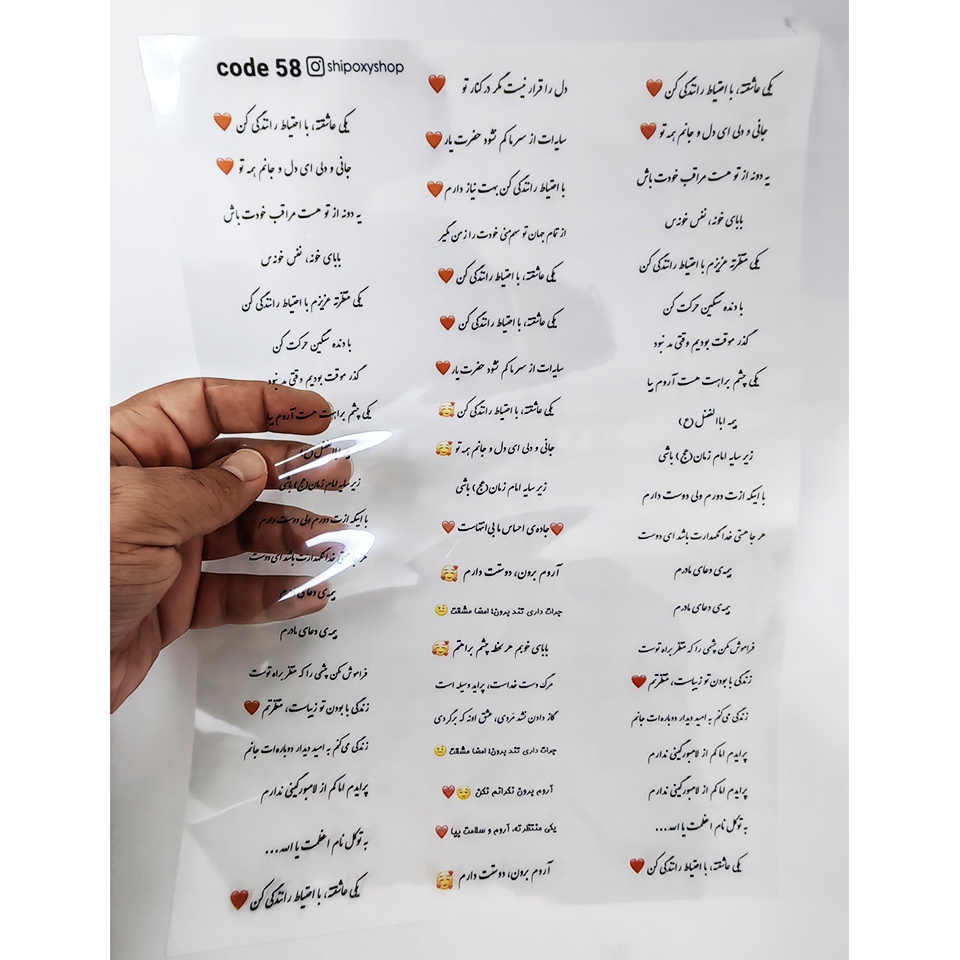 code 58 shipoxyshop
یکی عاشقته، با احتیاط رانندگی کن ❤️
جانی و دلی ای دل و جانم همه تو ❤️
یه دونه از تو هست مراقب خودت باش
بابای خونه، نفس خونه س
یکی منتظرته عزیزم با احتیاط رانندگی کن
با دنده سنگین حرکت کن
گذر موقت بودیم وقتی مد نبود
یکی چشم براهت هست آروم بیا
بیمه اباالفضل (ع)
زیر سایه امام زمان (عج) باشی
با اینکه ازت دورم ولی دوست دارم
هر جا هستی خدا نگهدارت باشد ای دوست
بیمه ی دعای مادرم
بیمه ی دعای مادرم
فراموش نکن چشمی را که منتظر براه توست
زندگی با بودن تو زیباست، منتظرتم ❤️
زندگی می کنم به امید دیدار دوباره ات جانم
پرایدم اما کم از لامبورگینی ندارم
به توکل نام اعظمت یا الله...
یکی عاشقته، با احتیاط رانندگی کن ❤️
دل را قرار نیست مگر در کنار تو ❤️
سایه ات از سر ما کم نشود حضرت یار ❤️
با احتیاط رانندگی کن بهت نیاز دارم ❤️
از تمام جهان تو سهم منی خودت را از من نگیر
یکی عاشقته، با احتیاط رانندگی کن ❤️
یکی عاشقته، با احتیاط رانندگی کن ❤️
سایه ات از سر ما کم نشود حضرت یار ❤️
یکی عاشقته، با احتیاط رانندگی کن 🥰
جانی و دلی ای دل و جانم همه تو 🥰
زیر سایه امام زمان (عج) باشی
❤️جاده ی احساس ما بی انتهاست ❤️
آروم برون، دوستت دارم 🥰
جرات داری تند برون! امضا عشقت 🤨
بابای خوبم هر لحظه چشم براهتم 🥰
مرگ دست خداست، پراید وسیله است
گاز دادن نشد مردی، عشق اونه که برگردی
جرات داری تند برون! امضا عشقت 🤨
آروم برون نگرانم نکن 😌❤️
یکی منتظرته، آروم و سلامت بیا ❤️
آروم برون، دوستت دارم 🥰
یکی عاشقته، با احتیاط رانندگی کن ❤️
جانی و دلی ای دل و جانم همه تو ❤️
یه دونه از تو هست مراقب خودت باش
بابای خونه، نفس خونه س
یکی منتظرته عزیزم با احتیاط رانندگی کن
با دنده سنگین حرکت کن
گذر موقت بودیم وقتی مد نبود
یکی چشم براهت هست آروم بیا
بیمه اباالفضل (ع)
زیر سایه امام زمان (عج) باشی
با اینکه ازت دورم ولی دوست دارم
هر جا هستی خدا نگهدارت باشد ای دوست
بیمه ی دعای مادرم
بیمه ی دعای مادرم
فراموش نکن چشمی را که منتظر براه توست
زندگی با بودن تو زیباست، منتظرتم ❤️
زندگی می کنم به امید دیدار دوباره ات جانم
پرایدم اما کم از لامبورگینی ندارم
پرایدم اما کم از لامبورگینی ندارم
به توکل نام اعظمت یا الله...
یکی عاشقته، با احتیاط رانندگی کن ❤️